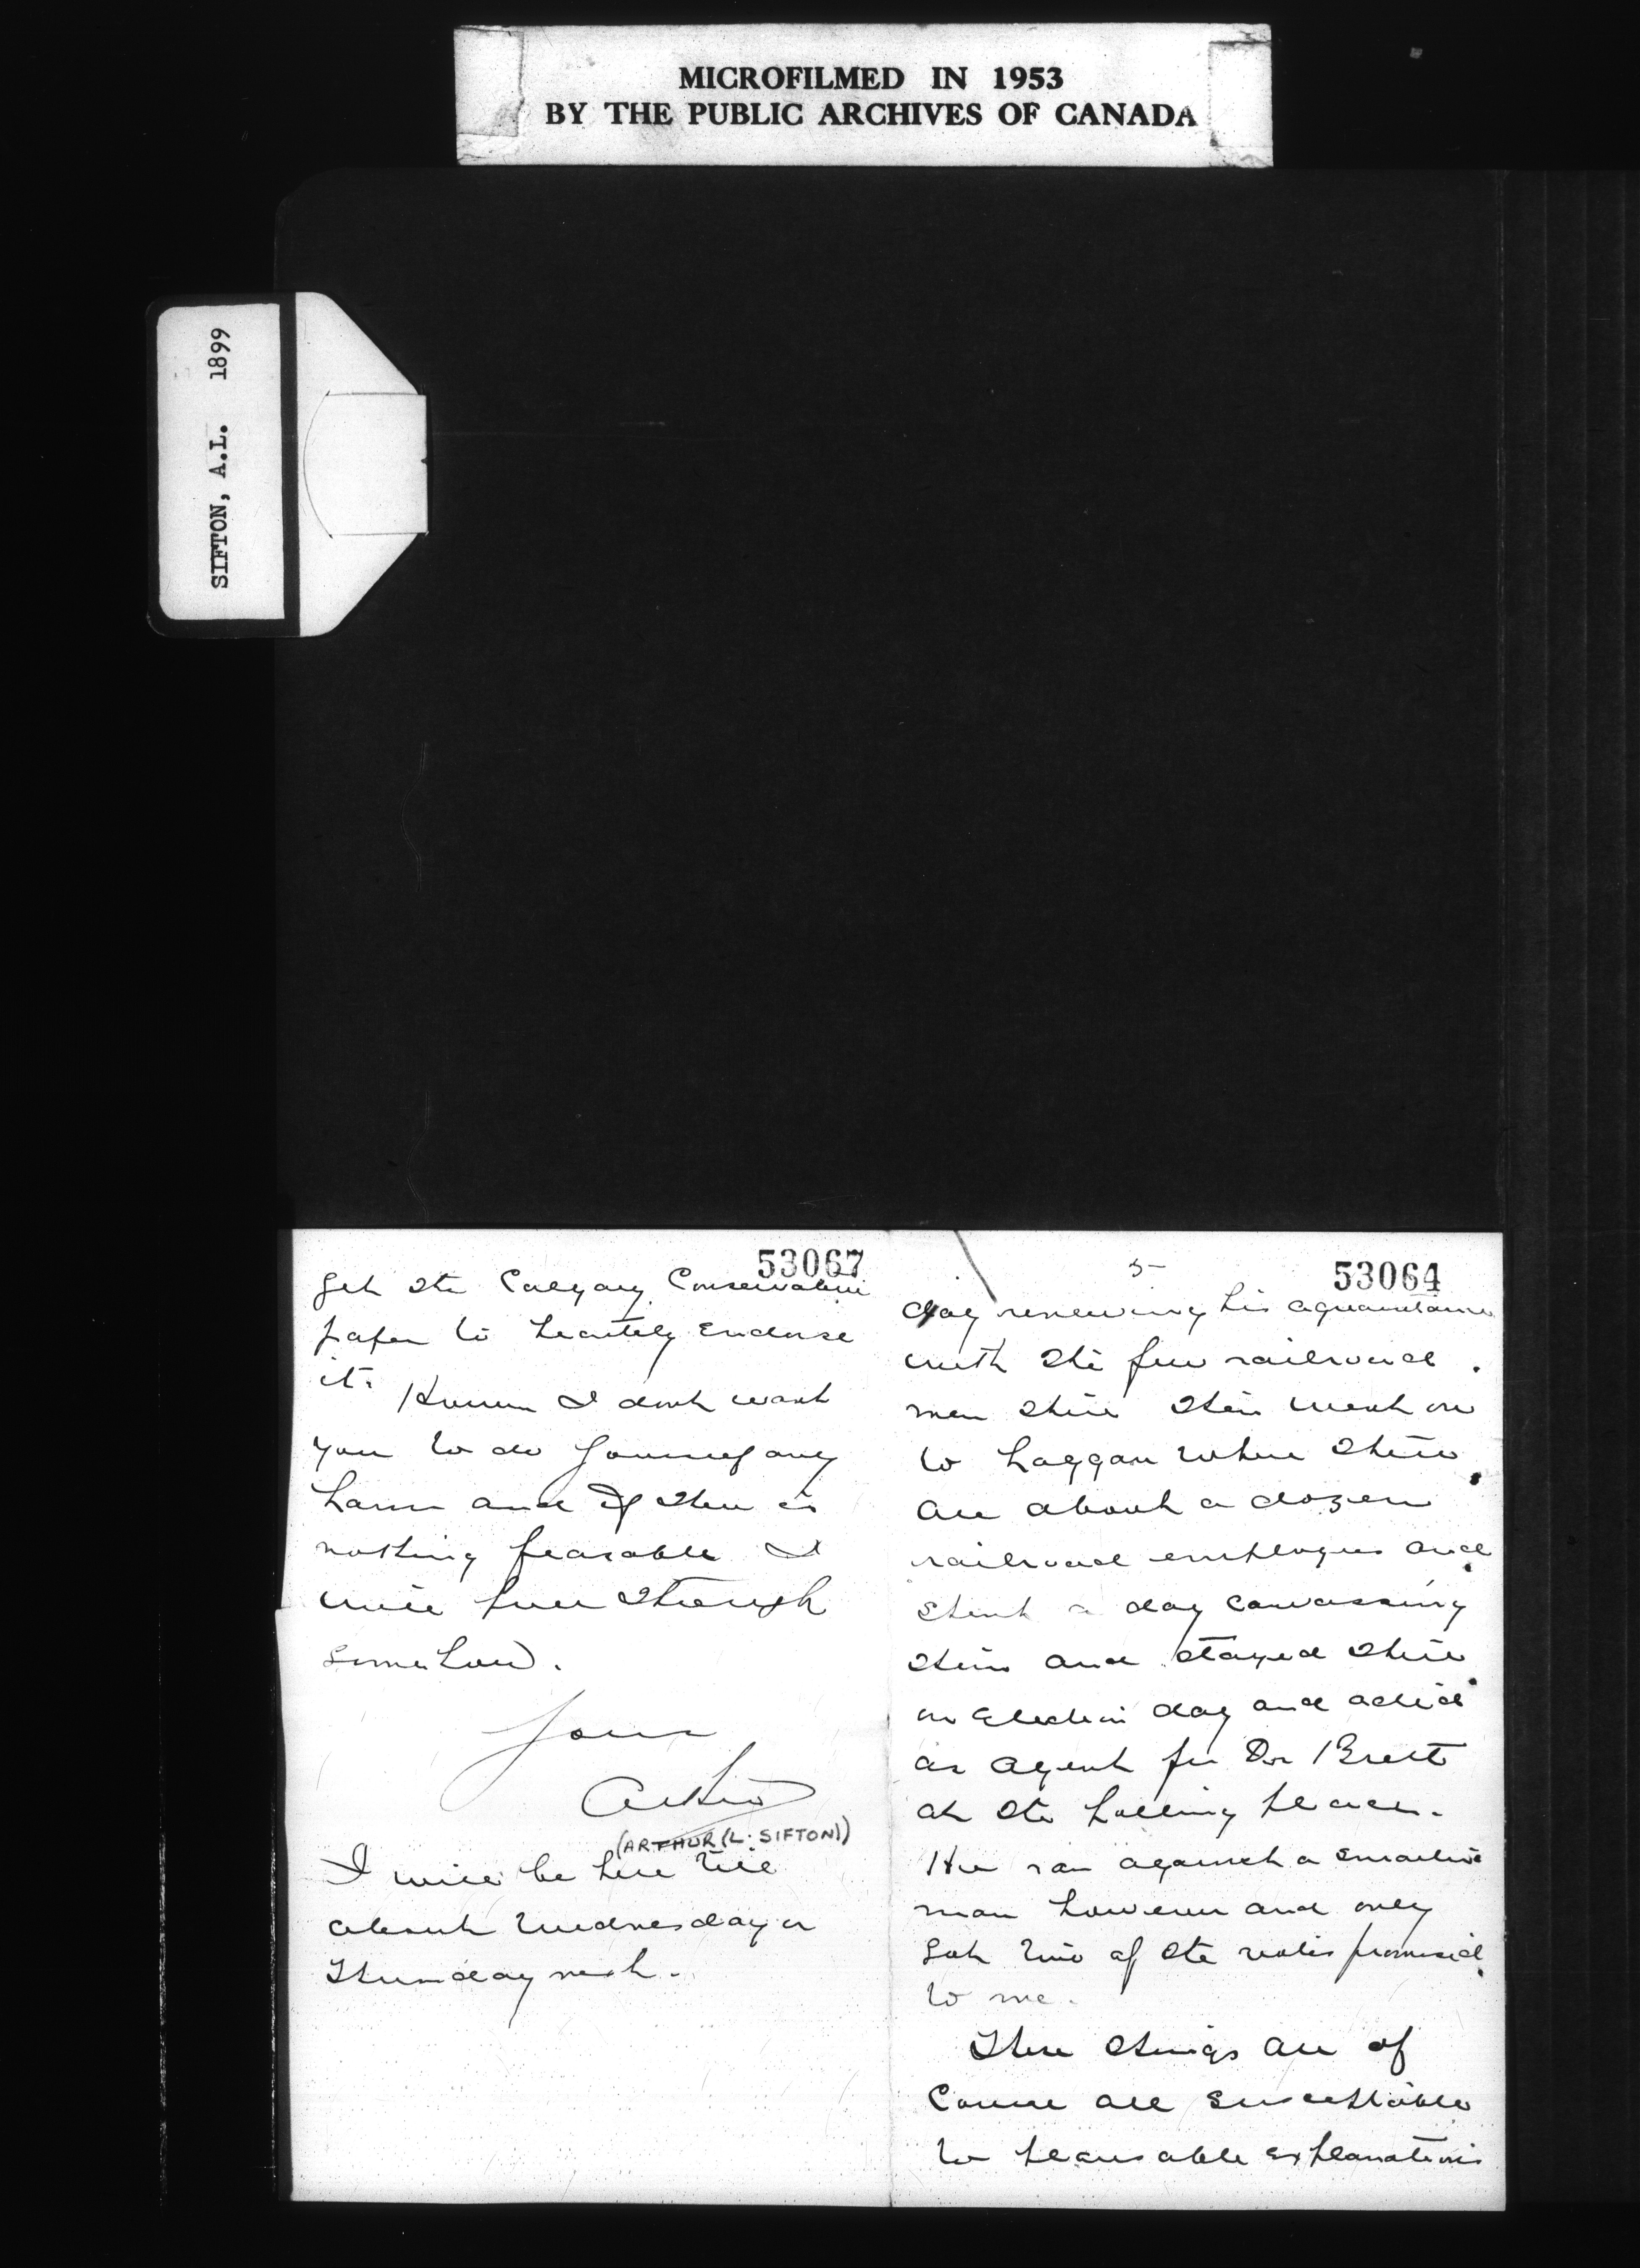 MICROFILMED IN 1953
BY THE PUBLIC ARCHIVES OF CANADA
SIFTON, A.L. 1899
53067
get the Calgary Conservative
paper to heartily endorse
it.
However I dont want
you to do yourself any
harm and if there is
nothing feasable I
will pull through
somehow.
Yours
Arthur
(ARTHUR (L. SIFTON))
I will be here till
about Wednesday or
Thursday next.
5
53064
day renewing his aquaintance
with the few railroad
men there then went on
to Laggan where there
are about a dozen
railroad employees and
spent a day canvassing
them and stayed there
on election day and acted
as agent for Dr Brett
at the polling place.
He ran against a smarter
man however and only
got two of the votes promised
to me.
These things are of
course all susceptible
to plausable explanations